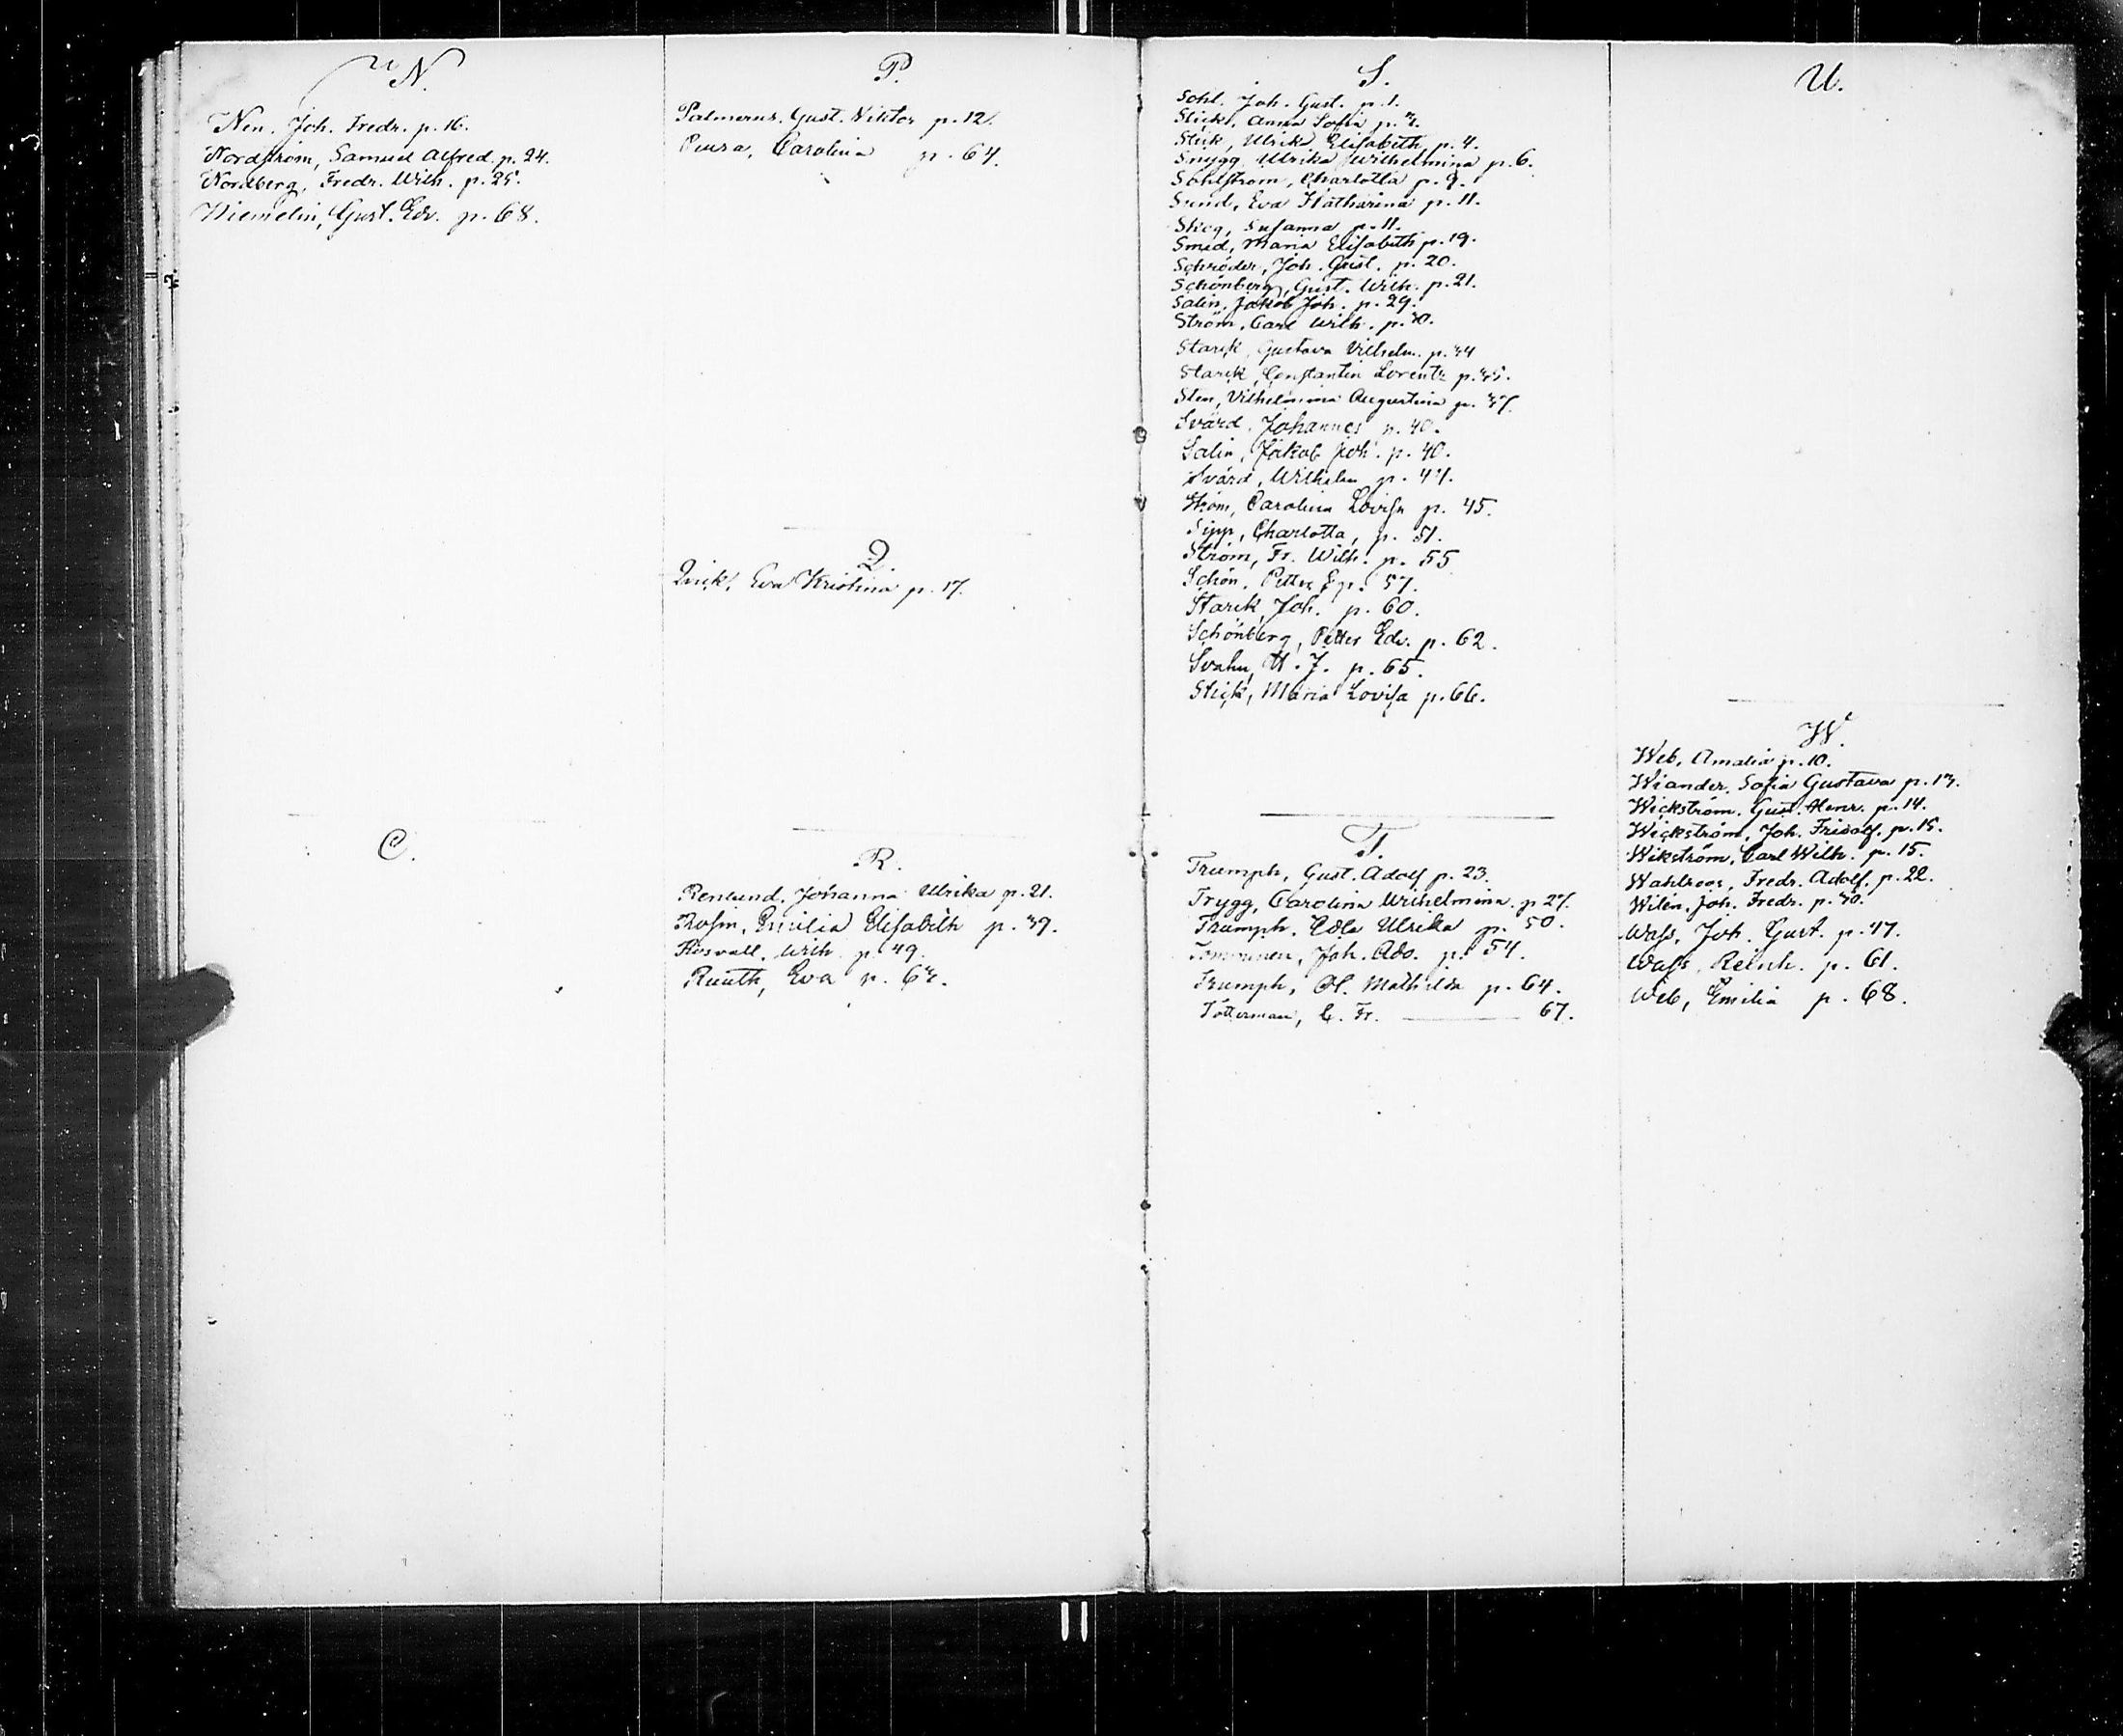 N.
Nen. Joh. Fredr. p. 16.
Nordström, Samuel Alfred. p. 24.
Nordberg, Fredr. Wilh. p. 25.
Niemelin, Gust. Edv. p. 68.
O.
P.
Palmerus. Gust. Viktor p. 12.
Piura, Carolina p. 64.
Q.
Qvick, Eva Kristina p. 17.
R.
Renlund, Johanna Ulrika p. 21.
Rosin, Cecilia Elisabeth p. 39.
Rosvall. Wilh. p. 49.
Ruuth, Eva p. 63.
S.
Sohl. Joh. Gust. p. 1.
Stick, Anna Sofia p. 3.
Stick, Ulrika Elisabeth p. 4.
Snygg, Ulrika Wilhelmina p. 6.
Sohlström, Charlotta p. 9.
Sund, Eva Katharina p. 11.
Skog, Susanna p. 11.
Smed, Maria Elisabeth p. 19.
Schröder, Joh. Gust. p. 20.
Schönberg, Gust. Wilh. p. 21.
Salin, Jakob Joh. p. 29.
Ström, Carl Wilh. p. 30.
Starck, Gustava Vilhelm. p. 34
Starck, Constantin Lorentz p. 35.
Sten, Vilhelmina Augustina p. 37.
Svärd, Johannes p. 40.
Salin, Jakob Joh. p. 40.
Svärd, Wilhelm p. 44.
Ström, Carolina Lovisa p. 45.
Sipp, Charlotta, p. 51.
Ström, Fr. Wilh. p. 55
Schön, Petter E p. 57.
Starck, Joh. p. 60.
Schönberg, Petter Edv. p. 62.
Svahn, A. J. p. 65.
Stick, Maria Lovisa p. 66.
T.
Trumph, Gust. Adolf p. 23.
Trygg, Carolina Wilhelmina. p 27.
Trumph, Edla Ulrika p. 50.
Tommunen, Joh. Ado. p. 54.
Trumph, Ol. Mathilda p. 64.
Tötterman, C. Fr. 67.
U.
W.
Web, Amalia p. 10.
Wiander, Sofia Gustava p. 13.
Wickström, Gust. Henr. p. 14.
Wickström, Joh. Fridolf. p. 15.
Wikström, Carl Wilh. p. 15.
Wahlroos, Fredr. Adolf. p. 22.
Wilén, Joh. Fredr. p. 30.
Wass, Joh. Gust. p. 47.
Wass, Reinh. p. 61.
Web, Emilia p. 68.